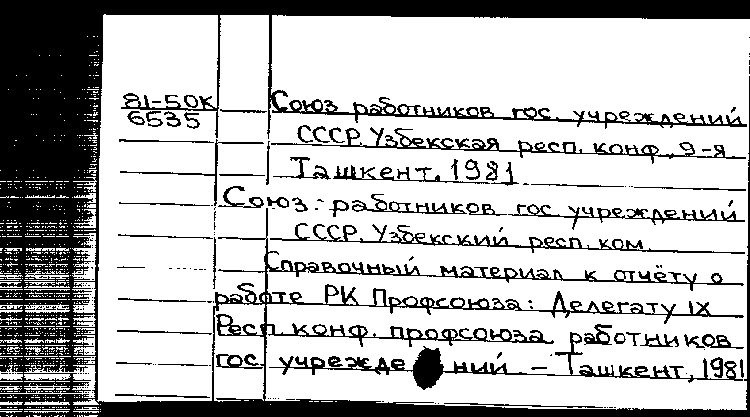 81-50К Союз работников гос. учреждений
6535 СССР. Узбекская респ. конф., 9-я.
Ташкент. 1981
Союз работников гос учреждений
СССР. Узбекский респ. ком.
Справочный материал к отчёту о
работе РК Профсоюза: Делегату IX
Респ конф. профсоюза работников
гос. учреждений. – Ташкент, 1981